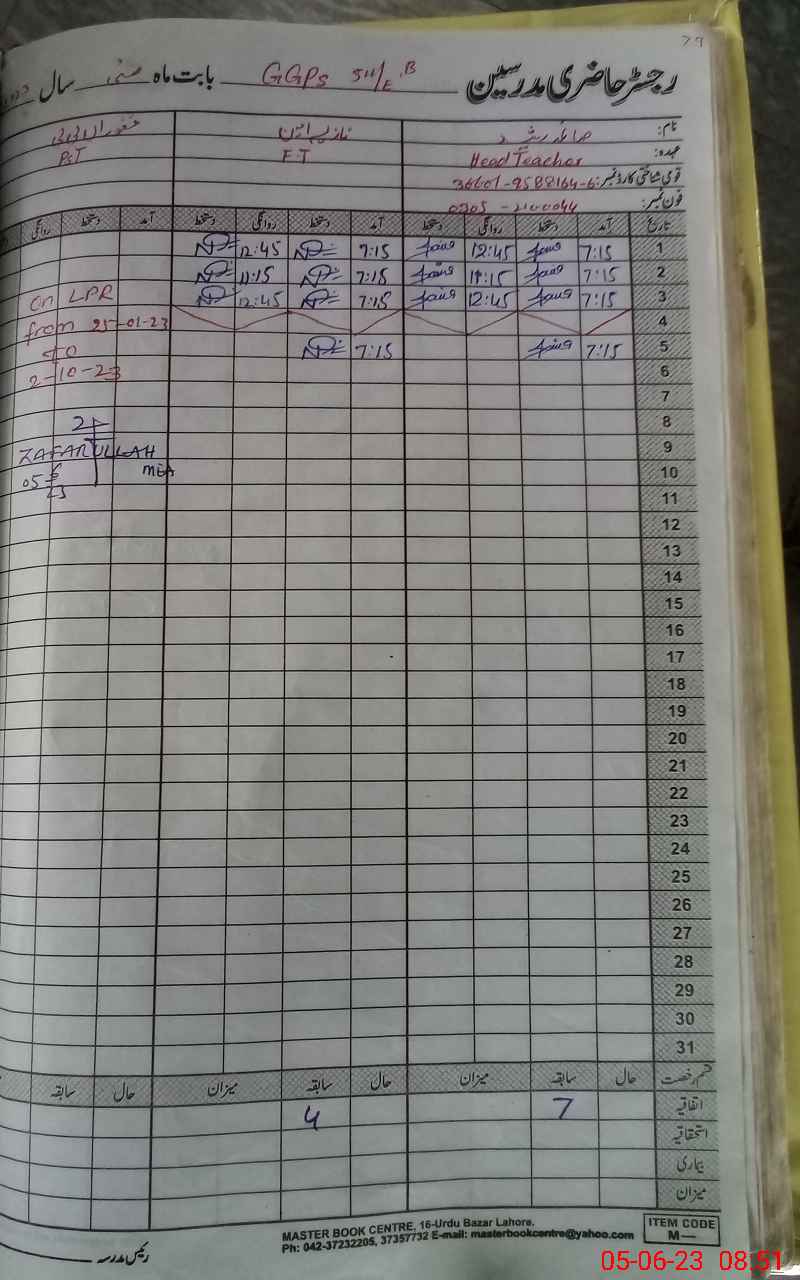 79
رجسٹر حاضری مدرسین GGPS 541/E.B بابت ماہ مئی سال
نام:
عہدہ: Head Teacher E.T PST
قومی شناختی کارڈ نمبر: 36601-9588164-6
فون نمبر: 0305-2100044
تاریخ آمد دستخط روانگی دستخط آمد دستخط روانگی دستخط آمد دستخط روانگی
1 7:15 12:45 7:15 12:45
2 7:15 11:15 7:15 11:15
3 7:15 12:45 7:15 12:45
on LPR
4
from 25-01-23
5 7:15 7:15
to
6
2-10-23
7
8
9
ZAFARULLAH
10
MEA
05-6
23
11
12
13
14
15
16
17
18
19
20
21
22
23
24
25
26
27
28
29
30
31
قسم رخصت حال سابقہ میزان حال سابقہ میزان حال سابقہ
اتفاقیہ 7 4
استحقاقیہ
بیماری
میزان
ITEM CODE
M—
MASTER BOOK CENTRE, 16-Urdu Bazar Lahore.
Ph: 042-37232205, 37357732 E-mail: masterbookcentre@yahoo.com
رئیس مدرسہ
05-06-23 08:51